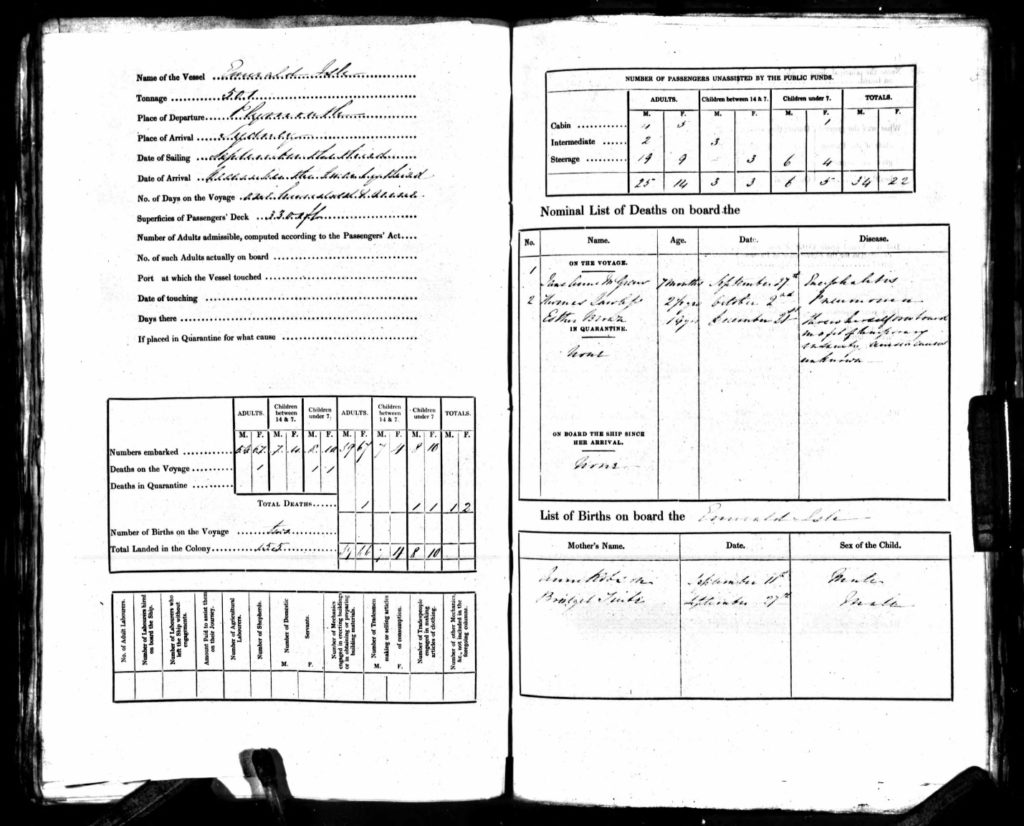 Name of the Vessel Emerald Isle
Tonnage 501
Place of Departure Plymouth
Place of Arrival Sydney
Date of Sailing September the third
Date of Arrival December the Twenty third
No. of Days on the Voyage one hundred &
Superficies of Passengers' Deck
Number of Adults admissible, computed according to the Passengers' Act
No. of such Adults actually on board
Port at which the Vessel touched
Date of touching
Days there
If placed in Quarantine for what cause
ADULTS. Children between 14 & 7. Children under 7. ADULTS. Children between 14 & 7. Children under 7 TOTALS.
M. F. M. F. M. F. M. F. M. F. M. F. M. F.
Numbers embarked 67 7 4 8 10 67 7 4 8 10
Deaths on the Voyage 1 1 1
Deaths in Quarantine
TOTAL DEATHS 1 1 1 1 2
Number of Births on the Voyage two
Total Landed in the Colony 155 66 4 8 10
No. of Adult Labourers.
Number of Labourers hired on board the Ship.
Number of Labourers who left the Ship without engagements.
Amount Paid to assist them on their Journey.
Number of Agricultural Labourers.
Number of Shepherds.
Number of Domestic Servants. M. F.
Number of Mechanics engaged in erecting buildings or in obtaining or preparing building materials.
Number of Tradesmen making or selling articles of consumption. M. F.
Number of Trades-people engaged in making articles of clothing.
Number of other Mechanics, &c., not included in the foregoing columns.
NUMBER OF PASSENGERS UNASSISTED BY THE PUBLIC FUNDS.
ADULTS. Children between 14 & 7. Children under 7. TOTALS.
M. F. M. F. M. F. M. F.
Cabin 4 5 1
Intermediate 2 3
Steerage 19 9 3 6 4
25 14 3 3 6 5 34 22
Nominal List of Deaths on board the
No. Name. Age. Date. Disease.
ON THE VOYAGE.
1 Jane Anne McGraw 7 months September 27th Encephalitis
2 Thomas 2 years October 2nd Pneumonia
Esther 19 yrs December 21st Threw herself overboard
in a fit of temporary
insanity cause
unknown
IN QUARANTINE.
None
ON BOARD THE SHIP SINCE HER ARRIVAL.
None
List of Births on board the Emerald Isle
Mother's Name. Date. Sex of the Child.
Anne September 11th Male
Bridget September 27th Male